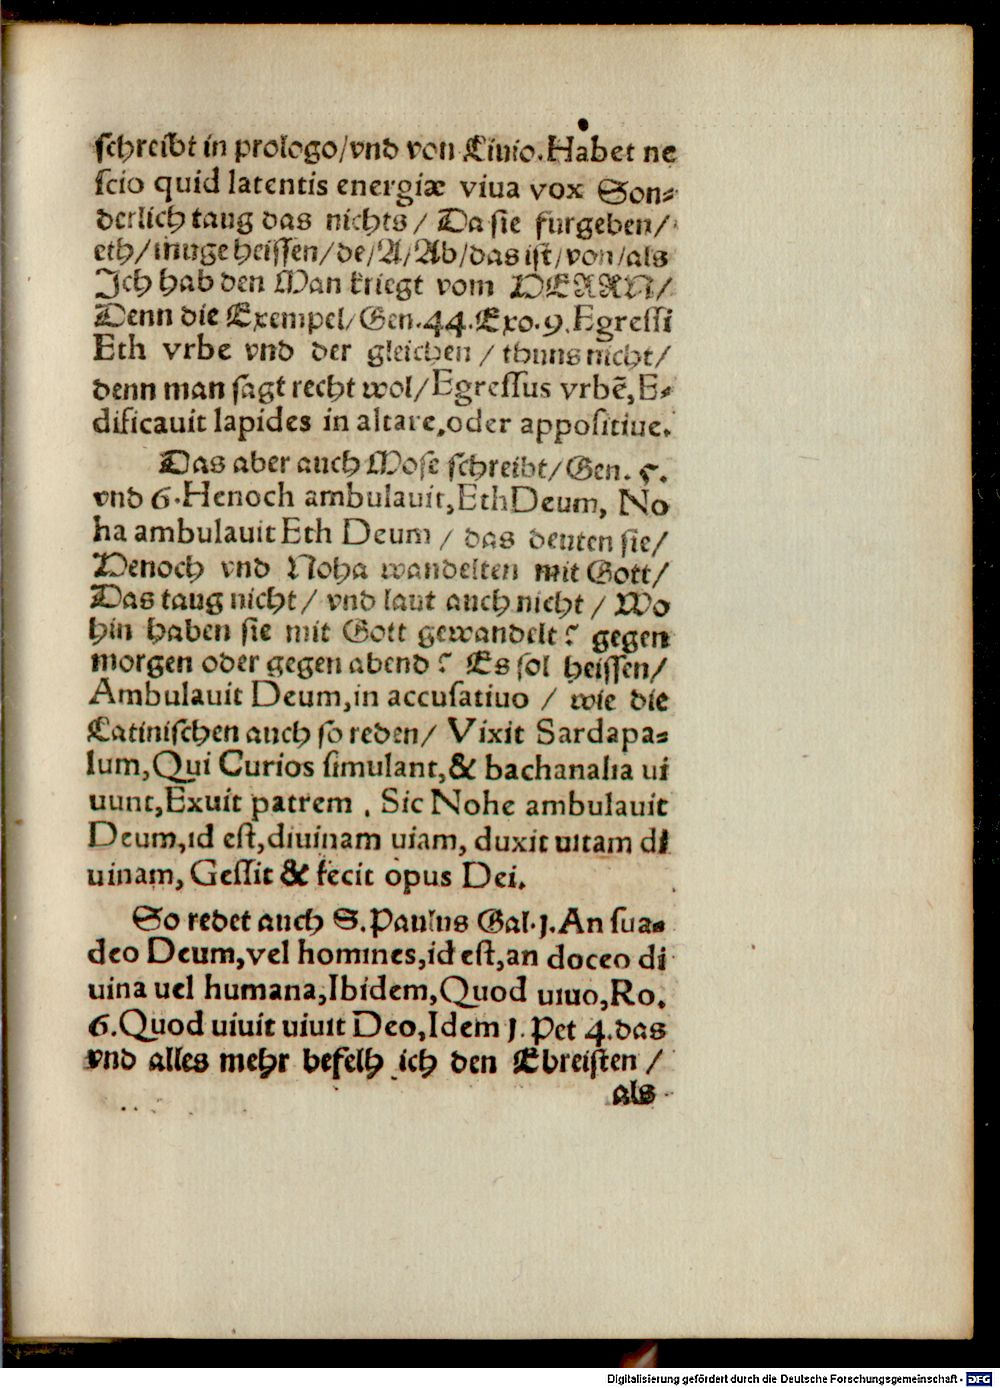 schreibt in prologo/vnd von Liuio. Habet ne
scio quid latentis energiæ viua vox Son⸗
derlich taug das nichts / Da sie furgeben/
eth/ muge heissen/de/A/Ab/das ist/von/als
Ich hab den Man kriegt vom HERRN/
Denn die Exempel/Gen.44.Exo.9.Egressi
Eth vrbe vnd der gleichen / thuns nicht/
denn man sagt recht wol/Egressus vrbẽ,E⸗
dificauit lapides in altare,oder appositiue.
Das aber auch Mose schreibt/Gen. 5.
vnd 6.Henoch ambulauit,Eth Deum, No
ha ambulauit Eth Deum / das deuten sie/
Henoch vnd Noha wandelten mit Gott/
Das taug nicht/ vnd laut auch nicht / Wo
hin haben sie mit Gott gewandelt? gegen
morgen oder gegen abend? Es sol heissen/
Ambulauit Deum,in accusatiuo / wie die
Latinischen auch so reden/ Vixit Sardapa⸗
lum,Qui Curios simulant,& bachanalia ui
uunt,Exuit patrem . Sic Nohe ambulauit
Deum,id est,diuinam uiam, duxit uitam di
uinam, Gessit & fecit opus Dei.
So redet auch S.Paulus Gal.j.An sua⸗
deo Deum,vel homines,id est,an doceo di
uina uel humana,Ibidem,Quod uiuo,Ro.
6.Quod uiuit uiuit Deo,Idem j. Pet 4.das
vnd alles mehr befelh ich den Ebreisten /
als
Digitalisierung gefördert durch die Deutsche Forschungsgemeinschaft - DFG